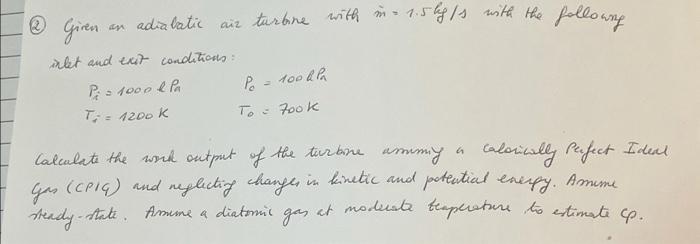 ② Given an adiabatic air turbine with ṁ = 1.5 kg/s with the following
inlet and exit conditions:
Pi = 1000 kPa Po = 100 kPa
Ti = 1200 K To = 700 K
Calculate the work output of the turbine assuming a Calorically Perfect Ideal
Gas (CPIG) and neglecting changes in kinetic and potential energy. Assume
steady-state. Assume a diatomic gas at moderate temperature to estimate cp.